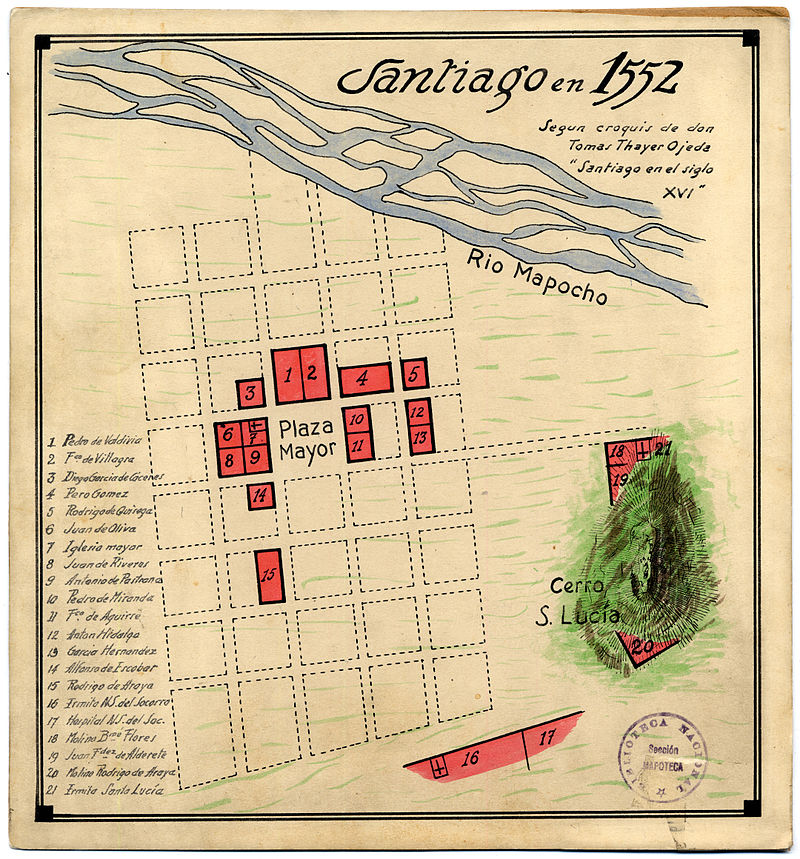 Santiago en 1552
Segun croquis de don
Tomas Thayer Ojeda
"Santiago en el siglo
XVI"
Rio Mapocho
1 2
3
4
5
6
7
8 9
Plaza
Mayor
10
11
12
13
14
15
18 21
19
Cerro
S. Lucía
20
16 17
1 Pedro de Valdivia
2 Fco de Villagra
3 Diego Garcia de Caceres
4 Pero Gomez
5 Rodrigo de Quiroga
6 Juan de Oliva
7 Iglesia mayor
8 Juan de Riveros
9 Antonio de Pastrana
10 Pedro de Miranda
11 Fco de Aguirre
12 Anton Hidalgo
13 Garcia Hernandez
14 Alfonso de Escobar
15 Rodrigo de Araya
16 Irmita N.S. del Socorro
17 Hospital N.S. del Soc.
18 Molino Bmé Flores
19 Juan Fdez de Alderete
20 Molino Rodrigo de Araya
21 Irmita Santa Lucía
BIBLIOTECA NACIONAL
Sección
MAPOTECA